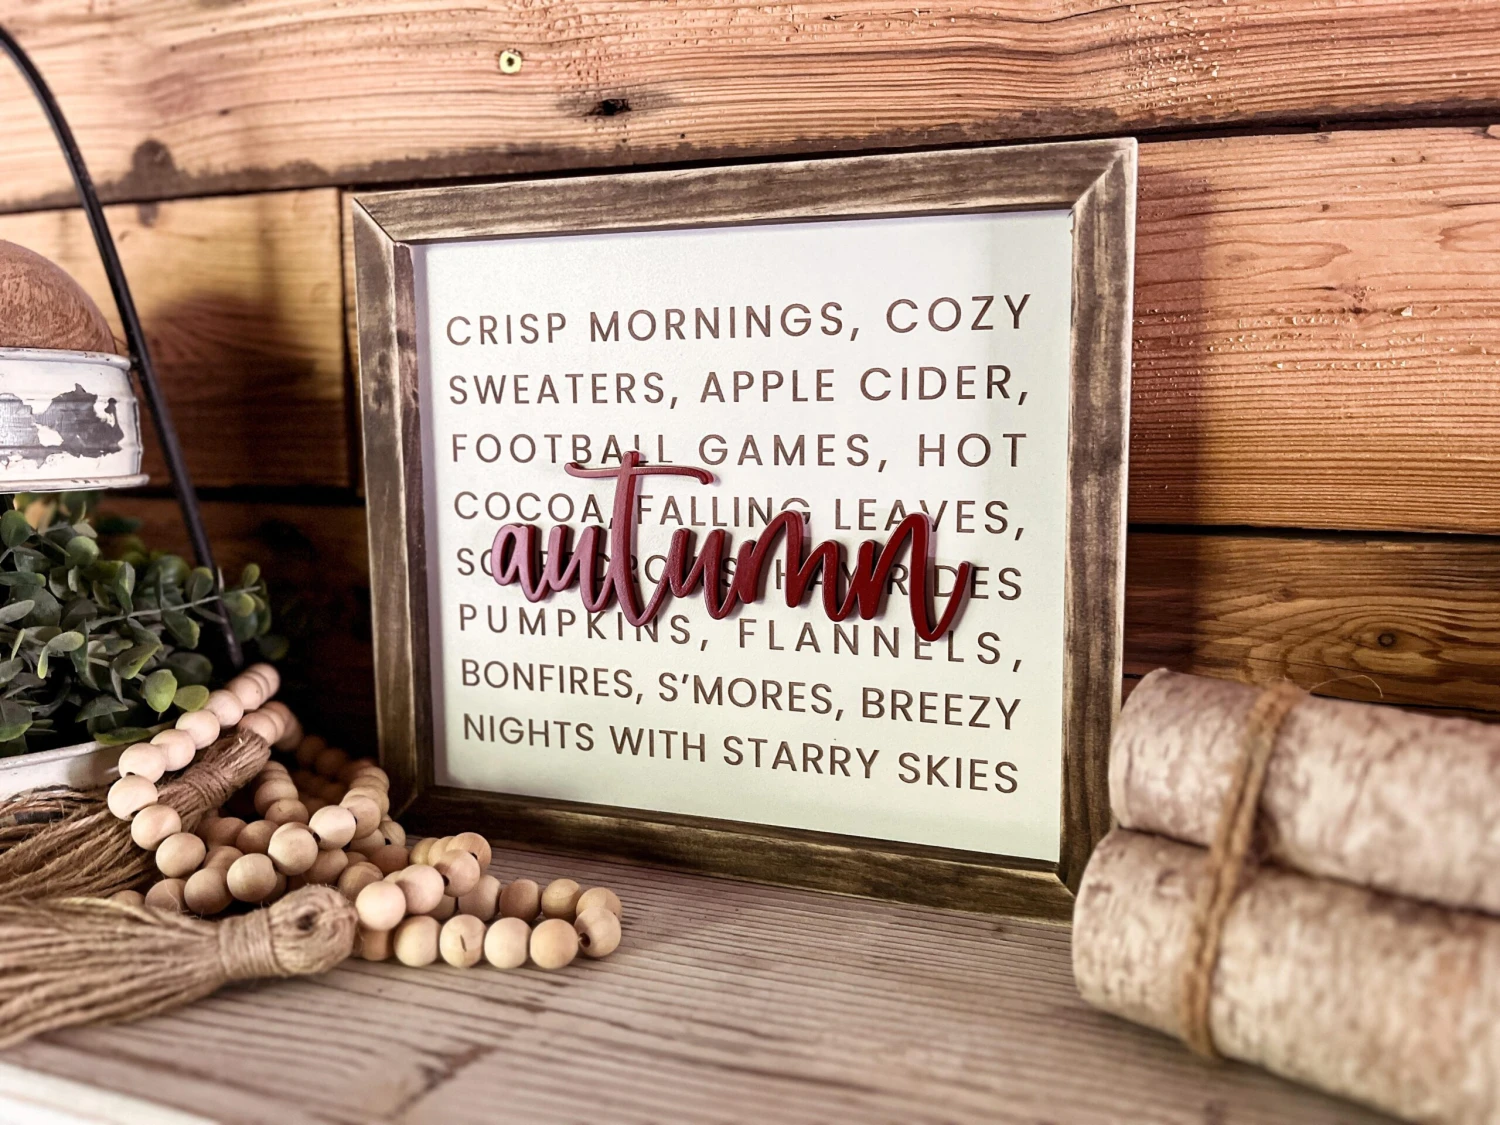 CRISP MORNINGS, COZY
SWEATERS, APPLE CIDER,
FOOTBALL GAMES, HOT
COCOA, FALLING LEAVES,
autumn
SCARECROWS, HAYRIDES
PUMPKINS, FLANNELS,
BONFIRES, S'MORES, BREEZY
NIGHTS WITH STARRY SKIES